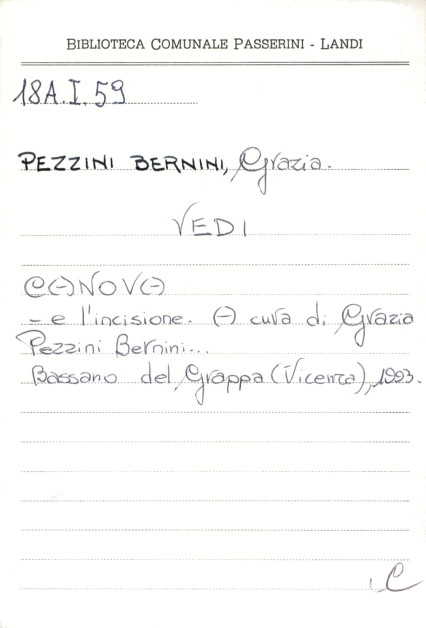 BIBLIOTECA COMUNALE PASSERINI - LANDI
18A.I.59
PEZZINI BERNINI, Grazia.
VEDI
CANOVA
- e l'incisione. A cura di Grazia
Pezzini Bernini...
Bassano del Grappa (Vicenza), 1993.
C